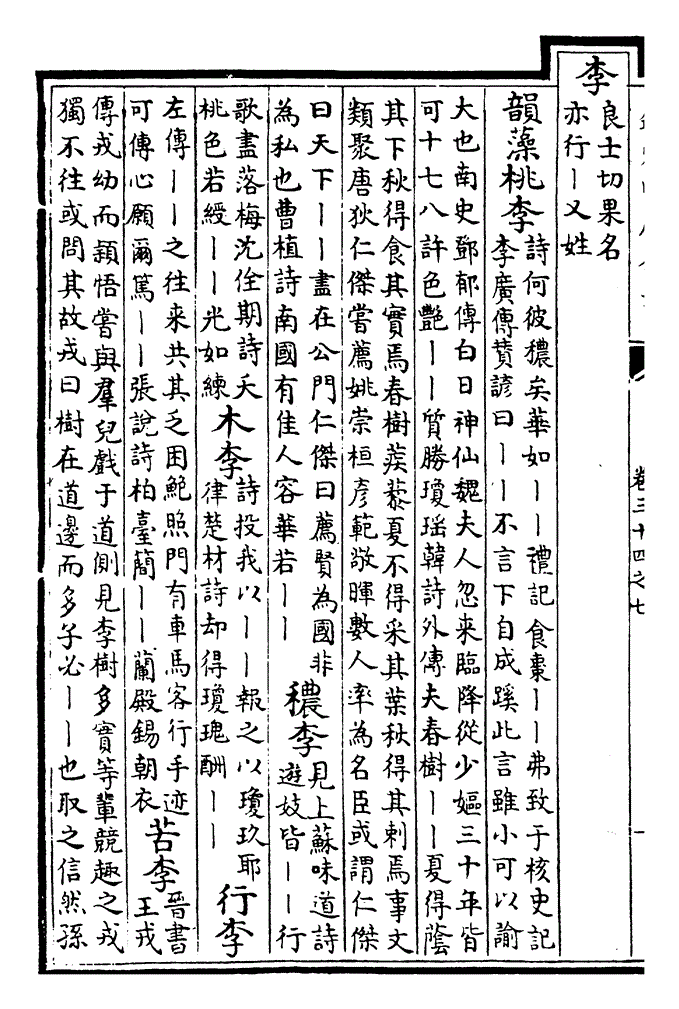 李
良士切果名
亦行丨又姓
韻藻桃李
詩何彼穠矣華如丨丨禮記食棗丨丨弗致于核史記
李廣傳贊諺曰丨丨不言下自成蹊此言雖小可以諭
大也南史鄧郁傳白日神仙魏夫人忽来臨降從少嫗三十年皆
可十七八許色艷丨丨質勝瓊瑶韓詩外傳夫春樹丨丨夏得蔭
其下秋得食其實焉春樹蒺藜夏不得采其葉秋得其刺焉事文
類聚唐狄仁傑嘗薦姚崇桓彦範敬暉數人率為名臣或謂仁傑
曰天下丨丨盡在公門仁傑曰薦賢為國非
為私也曹植詩南國有佳人容華若丨丨
穠李
見上蘇味道詩
遊妓皆丨丨行
歌盡落梅沈佺期詩夭
桃色若綬丨丨光如練
木李
詩投我以丨丨報之以瓊玖耶
律楚材詩却得瓊瑰酬丨丨
行李
左傳丨丨之往来共其乏困鮑照門有車馬客行手迹
可傳心願爾篤丨丨張說詩柏臺簡丨丨蘭殿錫朝衣
苦李
晉書
王戎
傳戎幼而頴悟嘗與羣兒戲于道側見李樹多實等輩競趣之戎
獨不往或問其故戎曰樹在道邊而多子必丨丨也取之信然孫
卷三十四之七